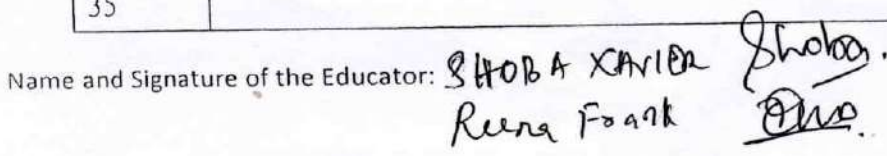 35
Name and Signature of the Educator: SHOBA XAVIER Shoba.
Reena Frank